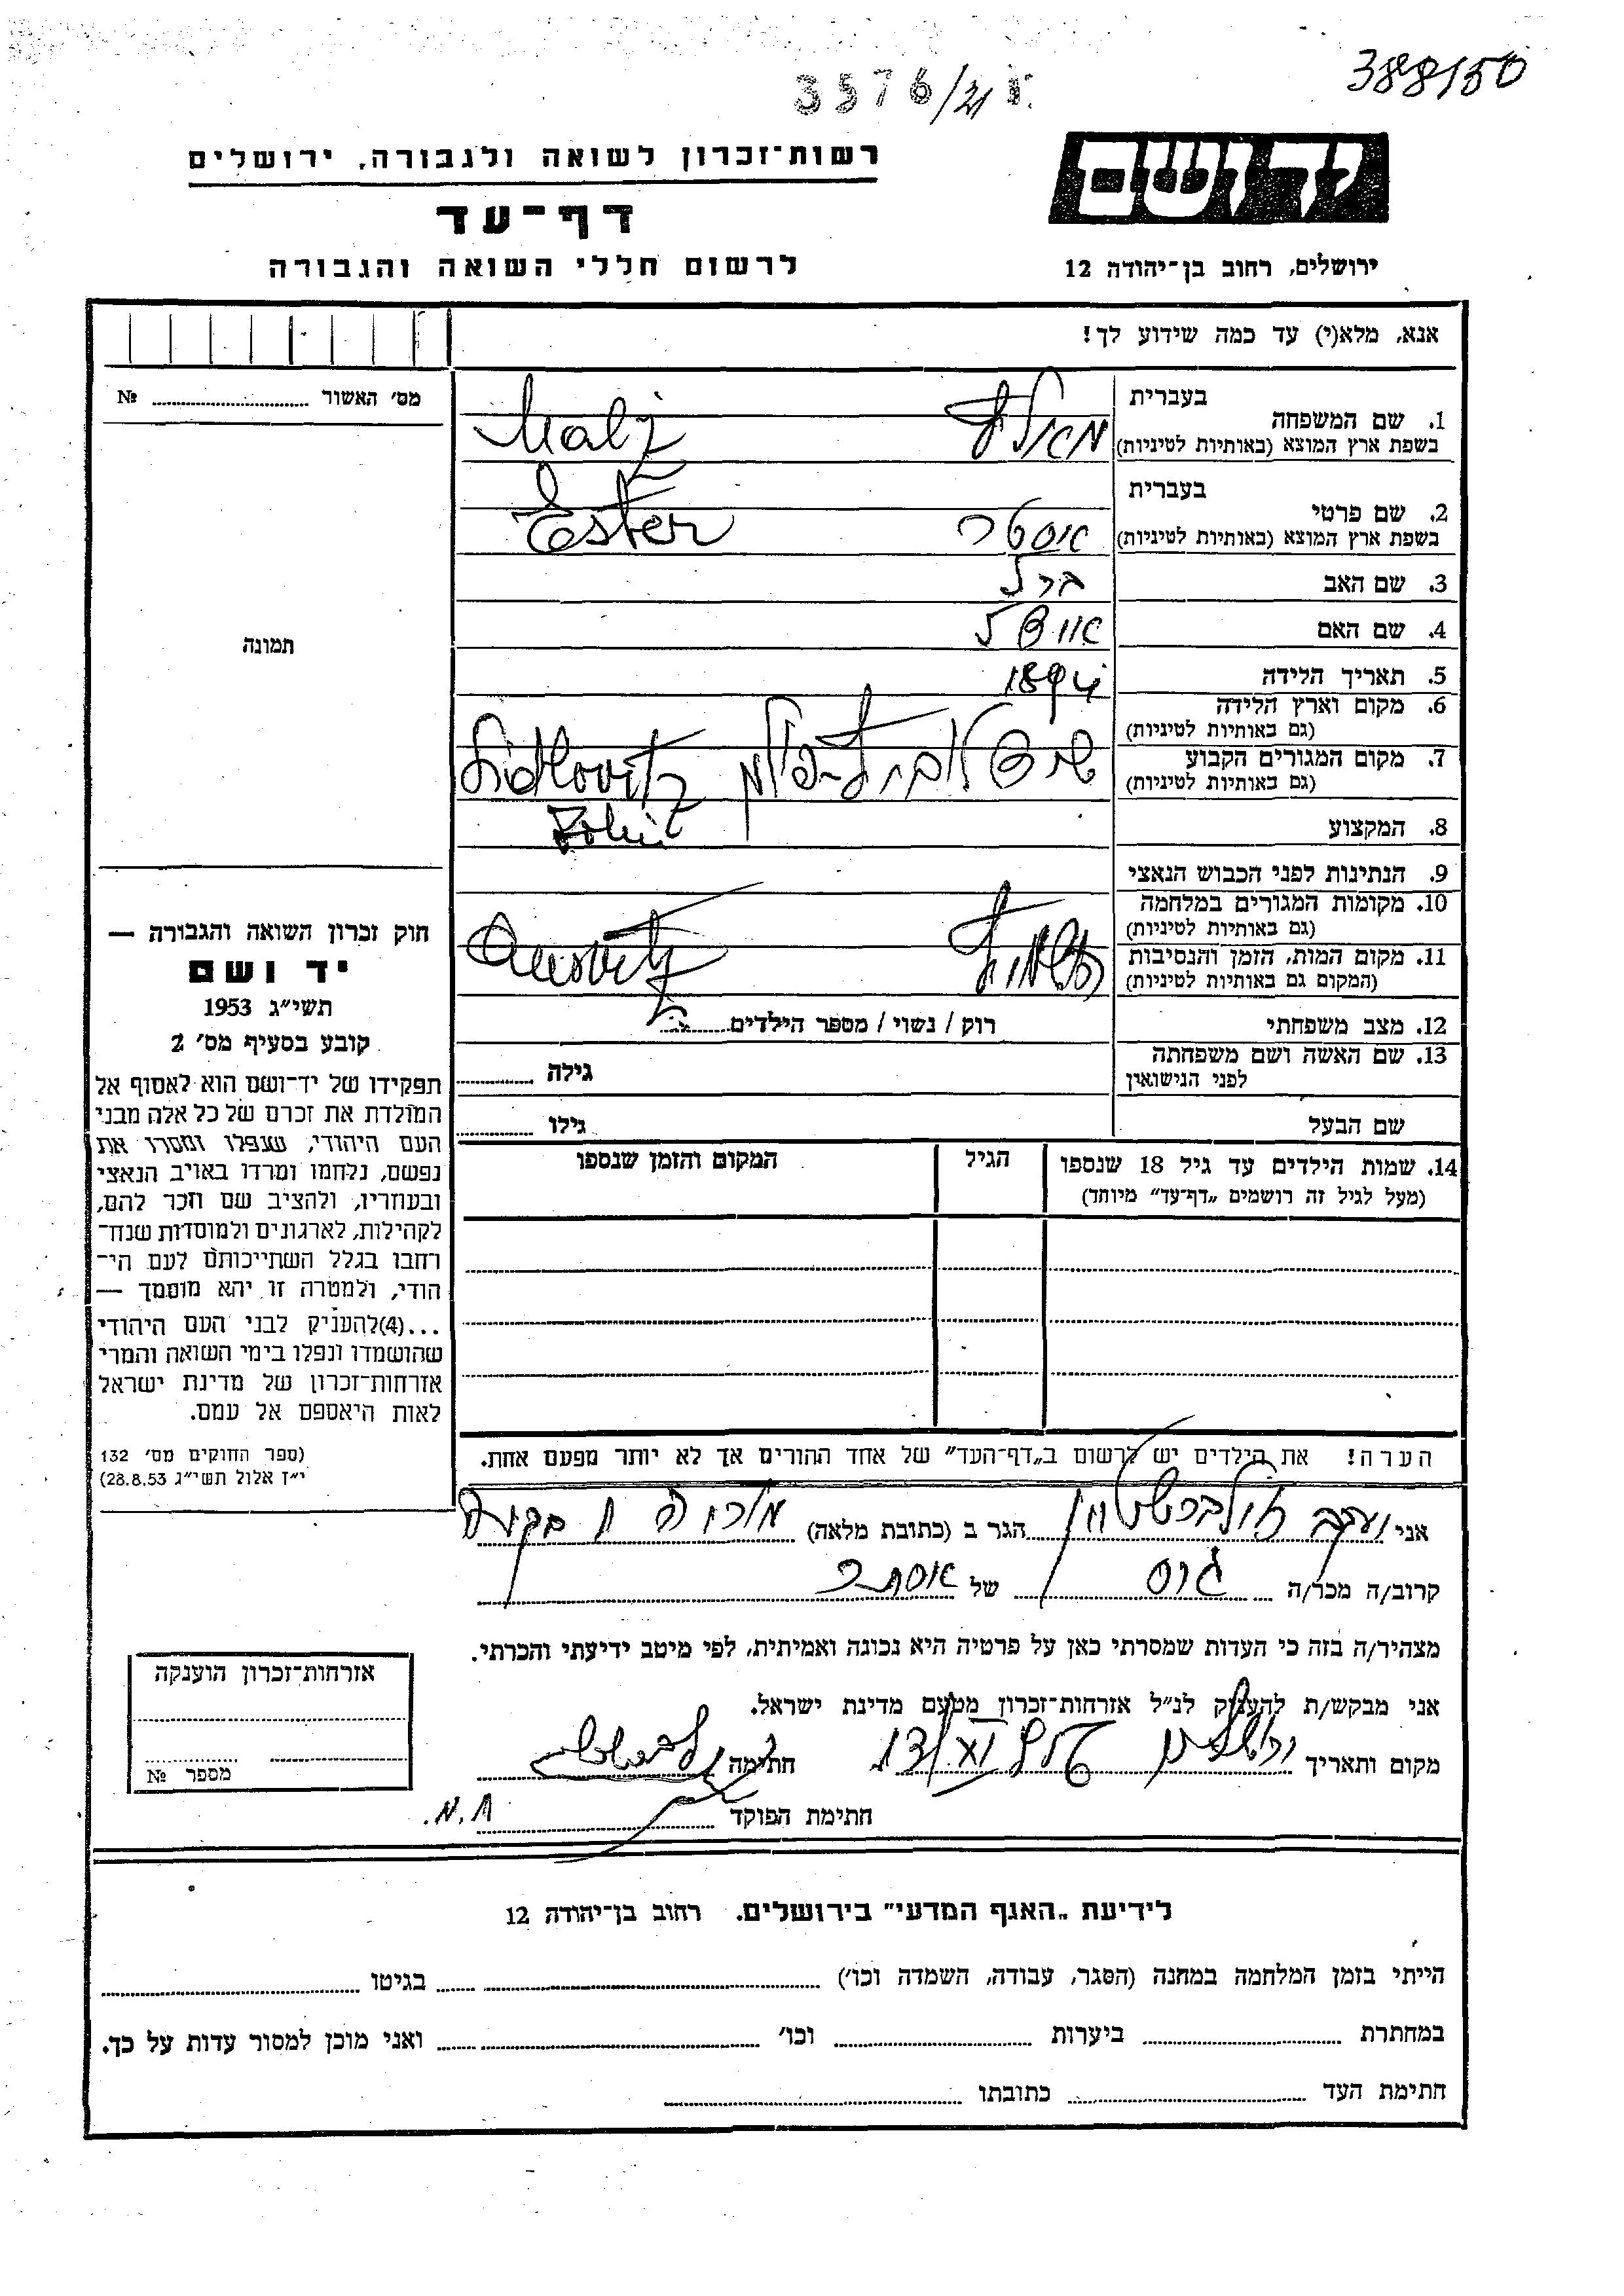 388150
3576/21
יד ושם
רשות־זכרון לשואה ולגבורה, ירושלים
דף־עד
לרשום חללי השואה והגבורה
ירושלים, רחוב בן־יהודה 12
אנא, מלא(י) עד כמה שידוע לך!
מס׳ האשור № 
בעברית
1. שם המשפחה
בשפת ארץ המוצא (באותיות לטיניות)
Malz
בעברית
2. שם פרטי
בשפת ארץ המוצא (באותיות לטיניות)
אסטר Ester
3. שם האב ברל
4. שם האם
5. תאריך הלידה 1894
6. מקום וארץ הלידה
(גם באותיות לטיניות)
7. מקום המגורים הקבוע
(גם באותיות לטיניות)
שידלוביץ פולין Sidlovitz
8. המקצוע
9. הנתינות לפני הכבוש הנאצי
10. מקומות המגורים במלחמה
(גם באותיות לטיניות)
11. מקום המות, הזמן והנסיבות
(המקום גם באותיות לטיניות)
12. מצב משפחתי רוק / נשוי / מספר הילדים
13. שם האשה ושם משפחתה
לפני הנישואין
גילה
שם הבעל גילו
14. שמות הילדים עד גיל 18 שנספו הגיל המקום והזמן שנספו
(מעל לגיל זה רושמים „דף־עד״ מיוחד)
תמונה
חוק זכרון השואה והגבורה —
יד ושם
תשי״ג 1953
קובע בסעיף מס׳ 2
תפקידו של יד־ושם הוא לאסוף אל
המולדת את זכרם של כל אלה מבני
העם היהודי, שנפלו ומסרו את
נפשם, נלחמו ומרדו באויב הנאצי
ובעוזריו, ולהציב שם וזכר להם,
לקהילות, לארגונים ולמוסדות שנח־
רחבו בגלל השתייכותם לעם הי־
הודי, ולמטרה זו יהא מוסמך —
...(4)להעניק לבני העם היהודי
שהושמדו ונפלו בימי השואה והמרי
אזרחות־זכרון של מדינת ישראל
לאות היאספם אל עמם.
(ספר החוקים מס׳ 132
י״ז אלול תשי״ג 28.8.53)
הערה! את הילדים יש לרשום ב„דף־העד״ של אחד ההורים אך לא יותר מפעם אחת.
אני יעקב הגר ב (כתובת מלאה)
קרוב/ה מכר/ה גיס של אסתר
מצהיר/ה בזה כי העדות שמסרתי כאן על פרטיה היא נכונה ואמיתית, לפי מיטב ידיעתי והכרתי.
אני מבקש/ת להעניק לנ״ל אזרחות־זכרון מטעם מדינת ישראל.
מקום ותאריך ירושלים חתימה
חתימת הפוקד
אזרחות־זכרון הוענקה
מספר №
לידיעת „האגף המדעי״ בירושלים. רחוב בן־יהודה 12
הייתי בזמן המלחמה במחנה (הסגר, עבודה, השמדה וכו׳) בגיטו
במחתרת ביערות וכו׳ ואני מוכן למסור עדות על כך.
חתימת העד כתובתו